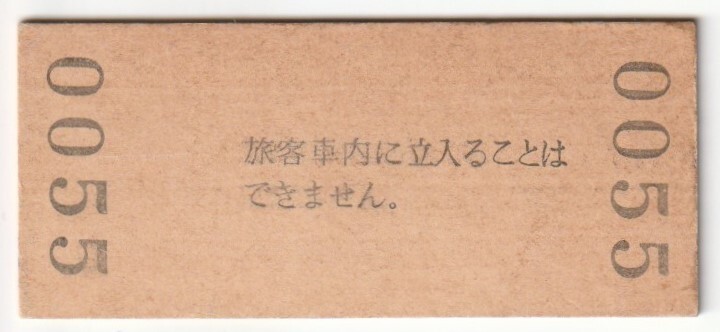 0055
旅客車内に立入ることは
できません。
0055